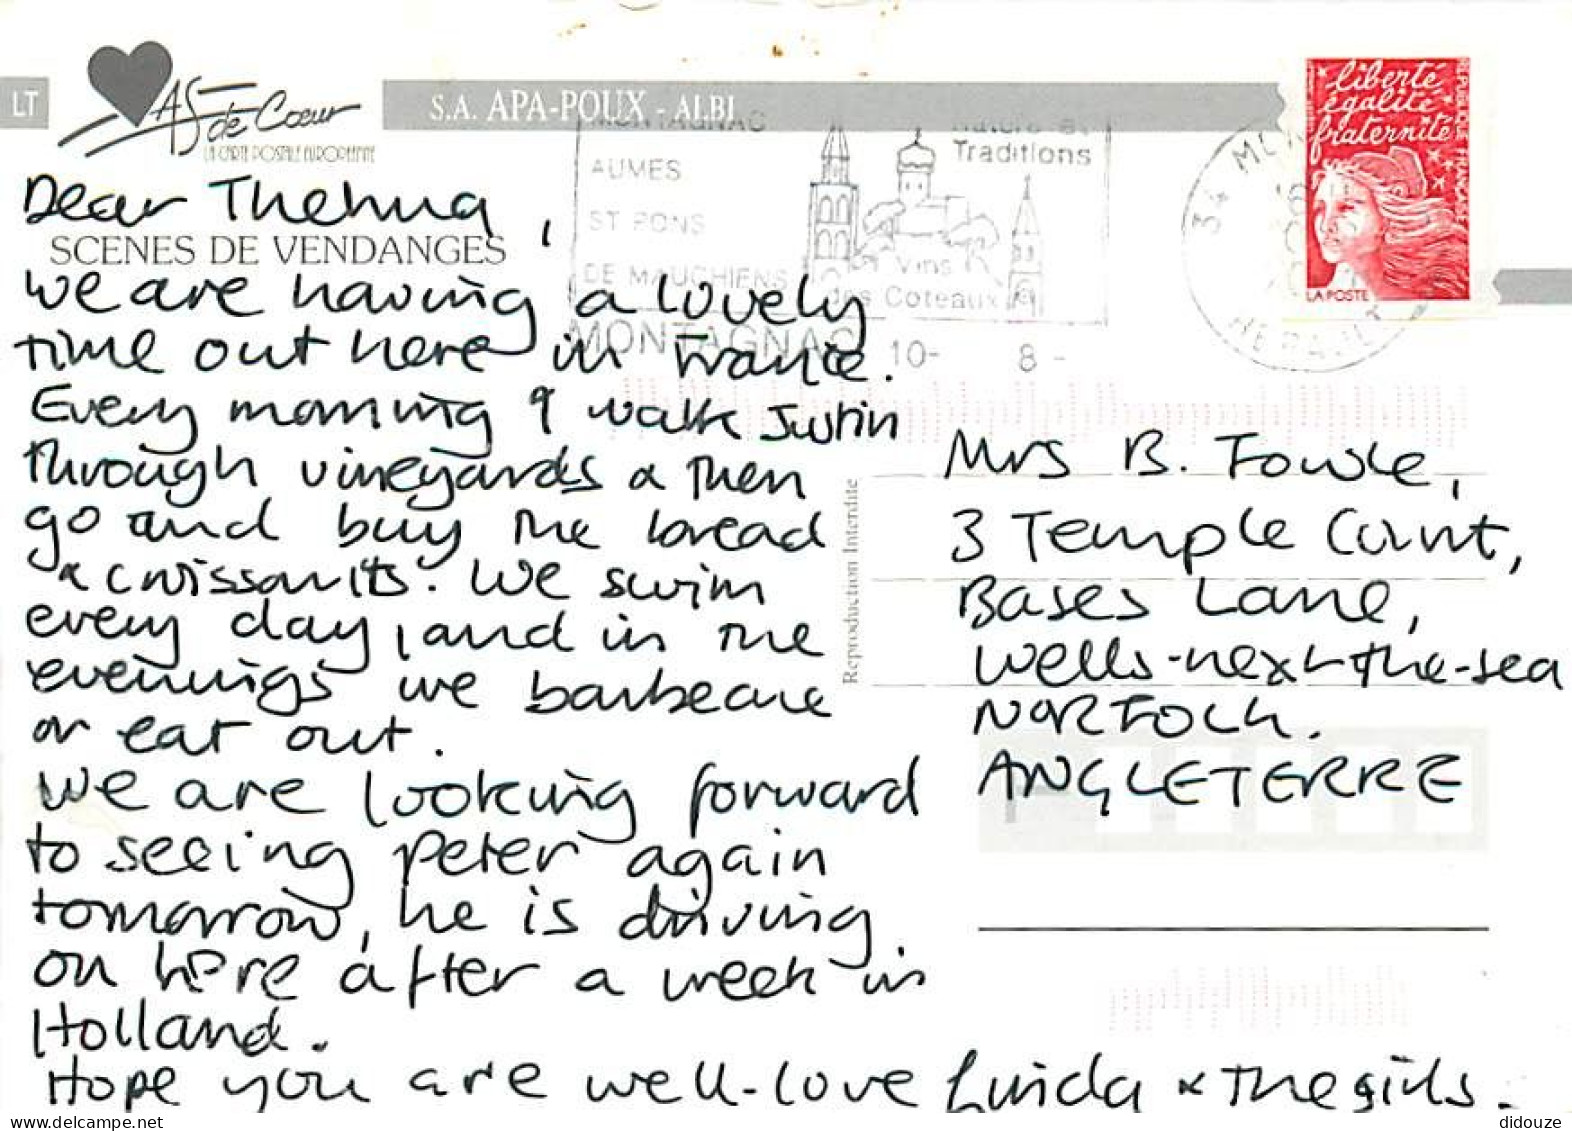 LT
As de Cœur
LA CARTE POSTALE EUROPEENNE
S.A. APA-POUX - ALBI
MONTAGNAC
AUMES
ST PONS
DE MAUCHIENS
MONTAGNAC
Nature et
Traditions
Vins
des Coteaux
10- 8-
34
HERAULT
liberté
égalité
fraternité
REPUBLIQUE FRANCAISE
LA POSTE
Dear Thelma,
SCENES DE VENDANGES
We are having a lovely
time out here in France.
Every morning I walk Justin
through vineyards & then
go and buy the bread
& croissants. We swim
every day, and in the
evenings we barbecue
or eat out.
We are looking forward
to seeing Peter again
tomorrow, he is driving
on here after a week in
Holland.
Hope you are well - love Linda & the girls.
Reproduction Interdite
Mrs B. Fowle,
3 Temple Court,
Bases Lane,
Wells-next-the-sea
NORFOLK.
ANGLETERRE
didouze